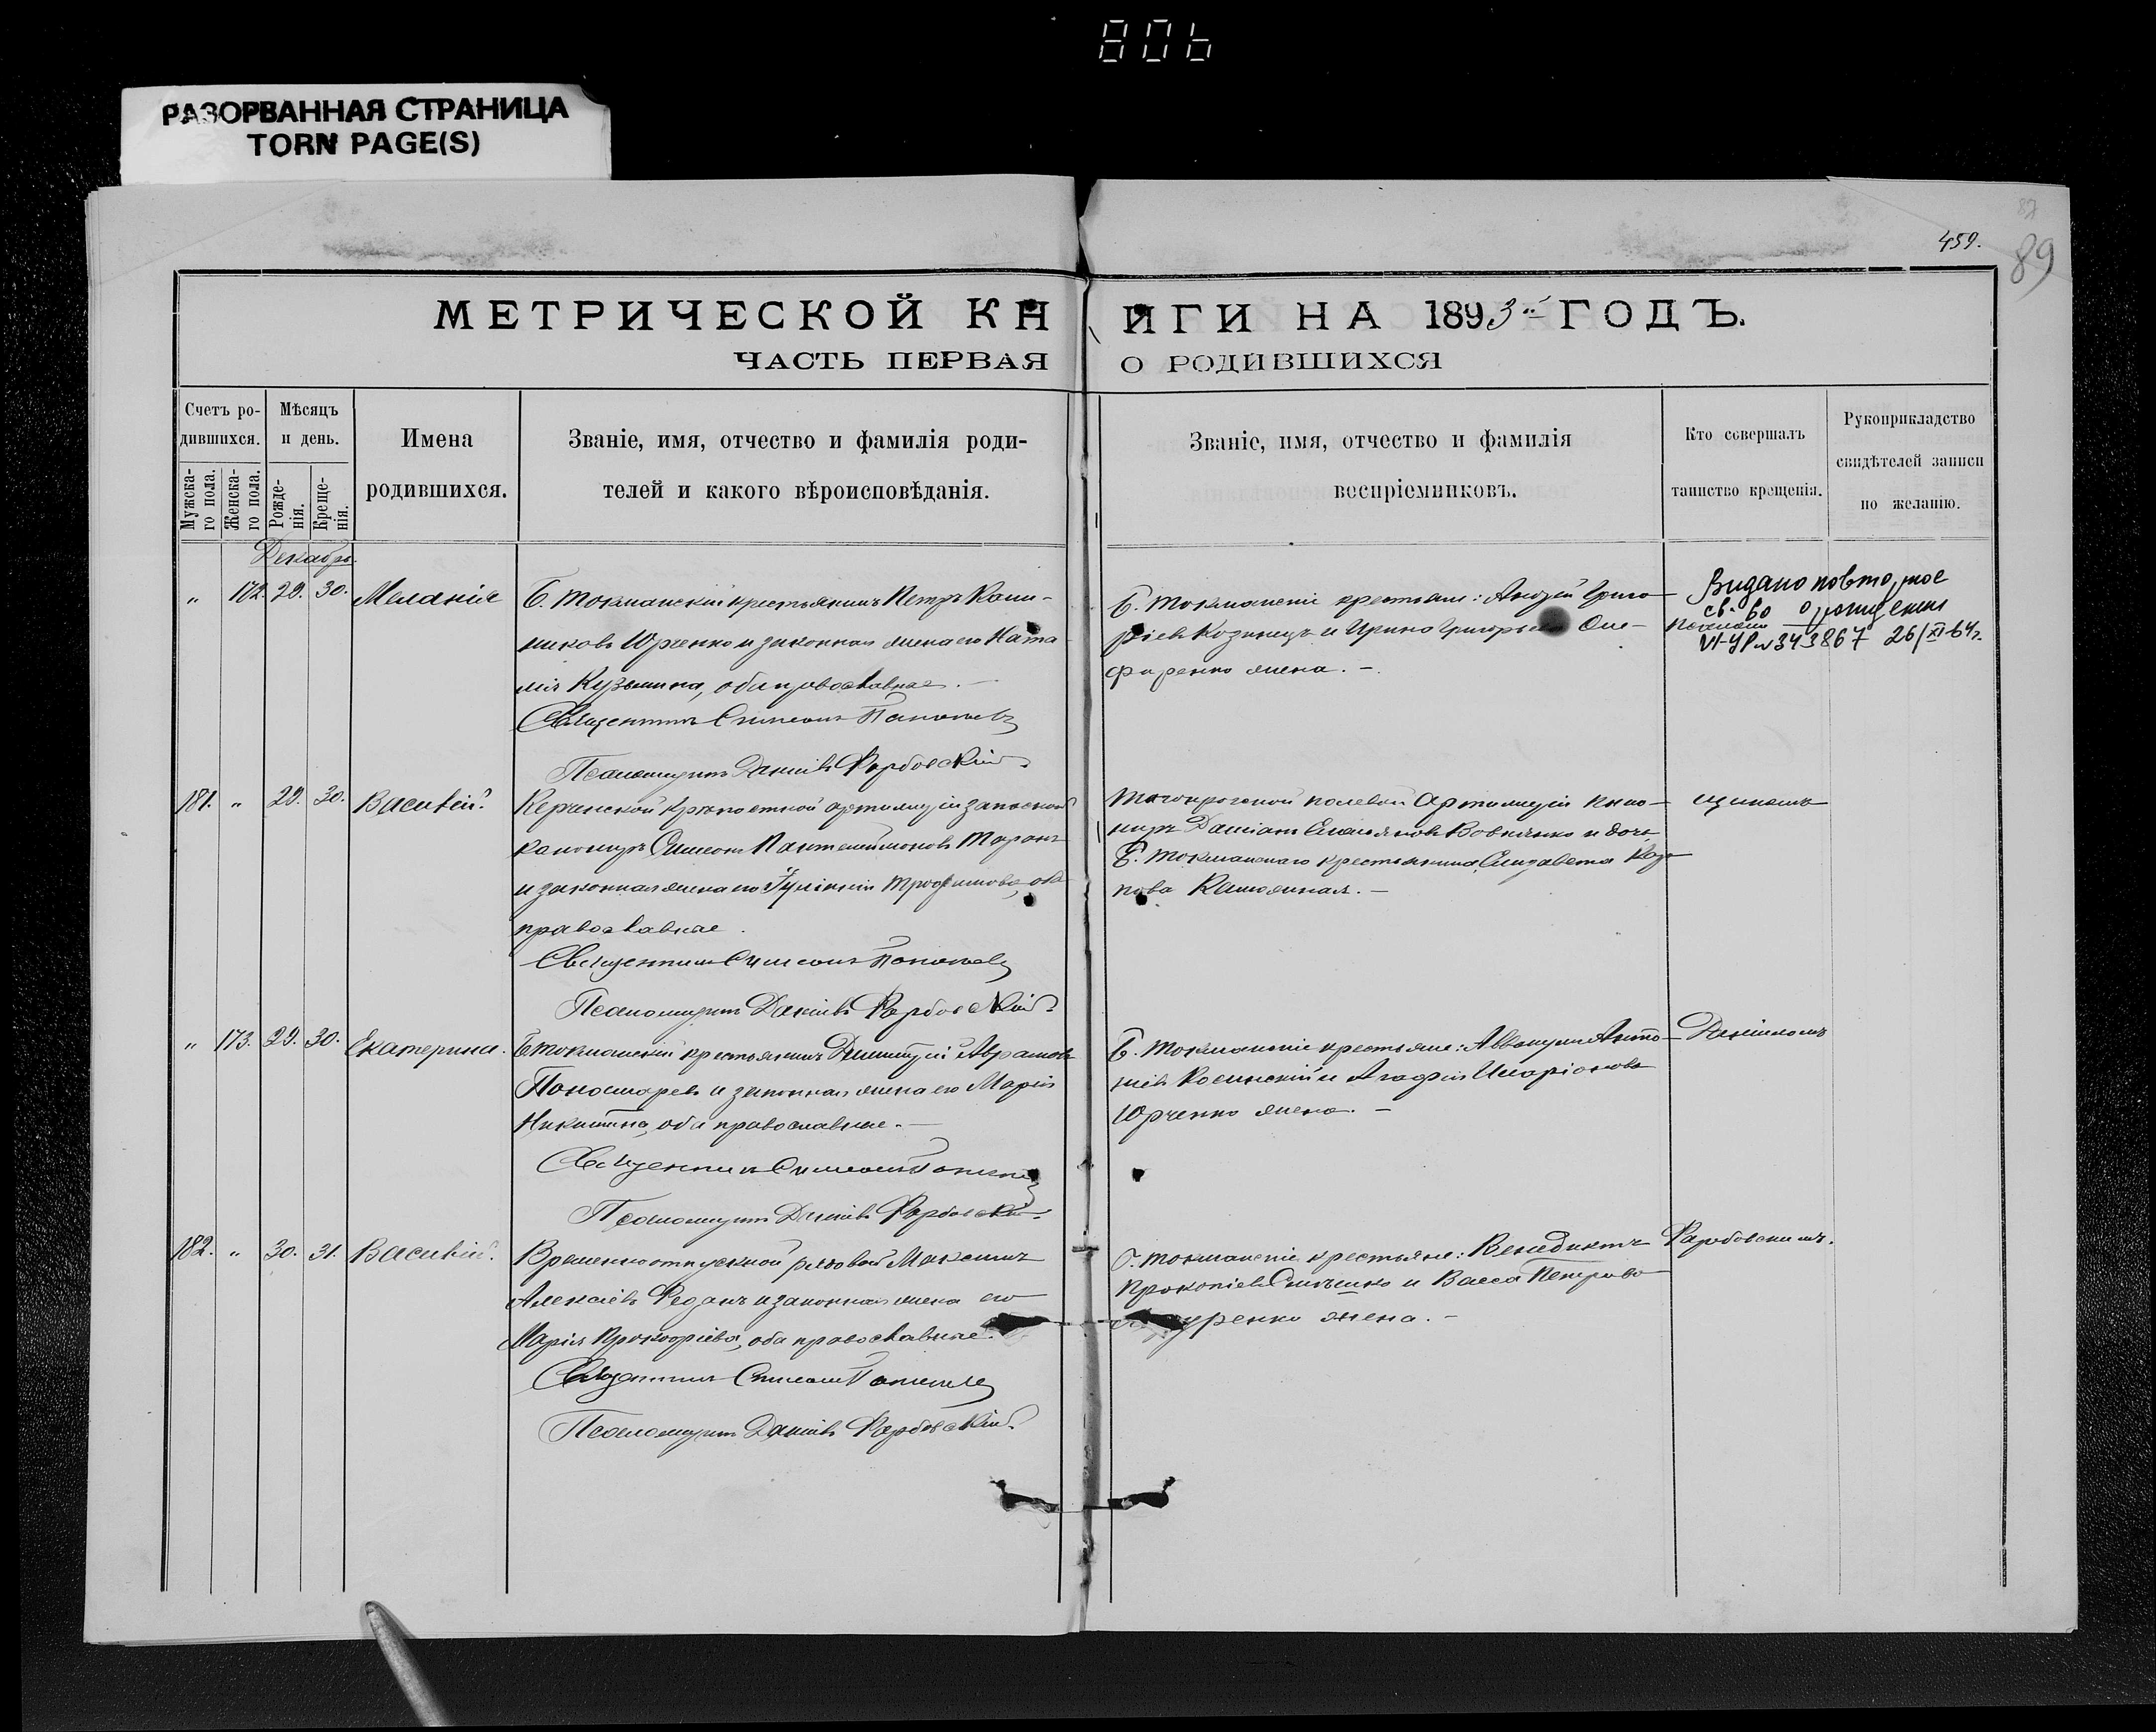 806
РАЗОРВАННАЯ СТРАНИЦА
TORN PAGE(S)
87
459.
89
МЕТРИЧЕСКОЙ КНИГИ НА 1893й ГОДЪ.
ЧАСТЬ ПЕРВАЯ О РОДИВШИХСЯ
Счетъ родившихся.
Мужска-
го пола.
Женска-
го пола.
Мѣсяцъ
и день.
Рожде-
нія.
Креще-
нія.
Имена
родившихся.
Званіе, имя, отчество и фамилія роди-
телей и какого вѣроисповѣданія.
Званіе, имя, отчество и фамилія
воспріемниковъ.
Кто совершалъ
таинство крещенія.
Рукоприкладство
свидѣтелей записи
по желанію.
Декабрь.
" 172. 29. 30. Меланія
Б. Токмакскій крестьянинъ Петръ
Юрченко и законная жена его Ната-
лія Кузьмина, оба православные.-
Священникъ Симеонъ
Псаломщикъ Даніилъ Фарбовскій
Б. Токмакскіе крестьяне: Андрей Григо-
ріевъ Козинецъ и Ирина Григорьева
жена.-
Видано повторное
св-во о рождении
VI-УР №343867 26/XI-64г.
181. " 29. 30. Василій.
Керченской крѣпостной артиллеріи запасной
канониръ Симеонъ Пантелеймоновъ Таранъ
и законная жена его Трофимова, оба
православные.
Священникъ Симеонъ
Псаломщикъ Даніилъ Фарбовскій
полевой Артиллеріи
Даміанъ Емельяновъ и дочь
Б. Токмакскаго крестьянина, Елизавета Кар-
пова.-
" 173. 29. 30. Екатерина.
Б. Токмакскій крестьянинъ Димитрій Аврамовъ
Пономаревъ и законная жена его Марія
Никитина, оба православные.-
Священникъ Симеонъ
Псаломщикъ Даніилъ Фарбовскій
Б. Токмакскіе крестьяне: Анто-
ніевъ и Агафія Иларіонова
Юрченко жена.-
182. " 30. 31. Василій.
Временноотпускной рядовой Максимъ
Алексіевъ и законная жена его
Марія Прокофіева, оба православные.
Священникъ Симеонъ
Псаломщикъ Даніилъ Фарбовскій
Б. Токмакскіе крестьяне: Венедиктъ
Прокопіевъ и Васса Петрова
жена.-
Фарбовскимъ.